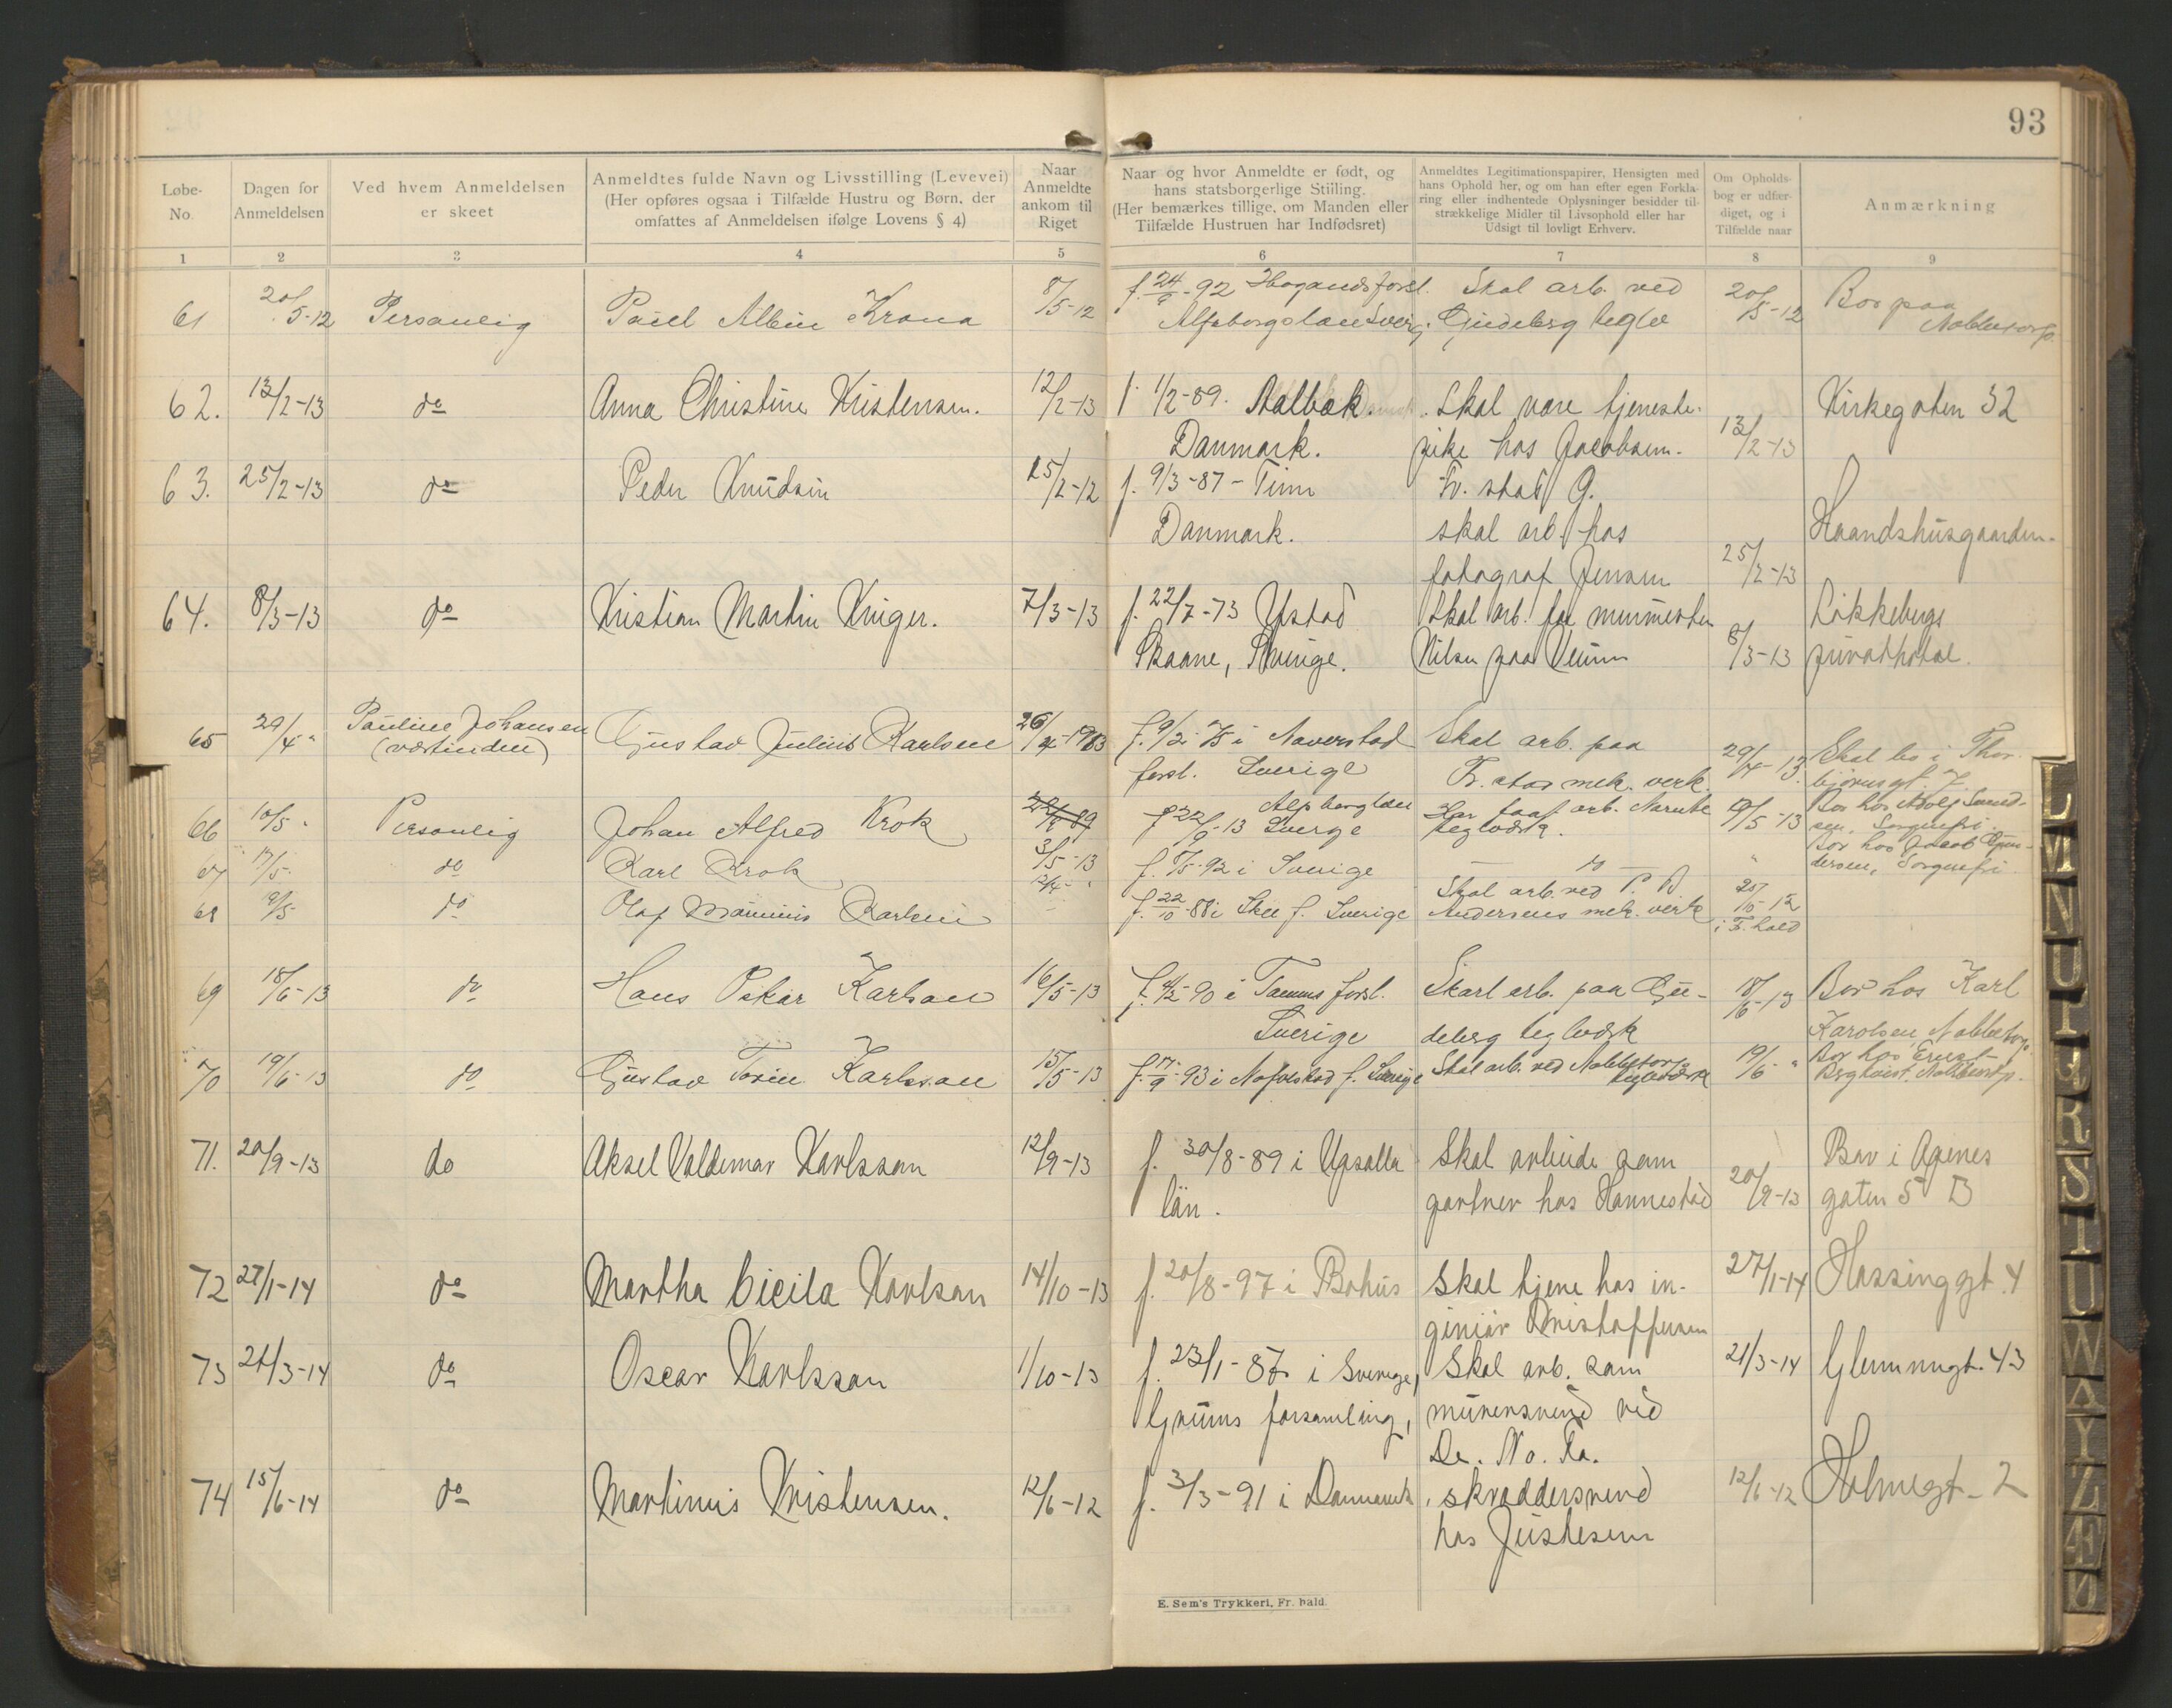 93
Løbe-
No.
Dagen for
Anmeldelsen
Ved hvem Anmeldelsen
er skeet
Anmeldtes fulde Navn og Livsstilling (Levevei)
(Her opføres ogsaa i Tilfælde Hustru og Børn, der
omfattes af Anmeldelsen ifølge Lovens § 4)
Naar
Anmeldte
ankom til
Riget
Naar og hvor Anmeldte er født, og
hans statsborgerlige Stilling.
(Her bemærkes tillige, om Manden eller
Tilfælde Hustruen har Indfødsret)
Anmeldtes Legitimationspapirer, Hensigten med
hans Ophold her, og om han efter egen Forkla-
ring eller indhentede Oplysninger besidder til-
strækkelige Midler til Livsophold eller har
Udsigt til lovligt Erhverv.
Om Opholds-
bog er udfær-
diget, og i
Tilfælde naar
Anmærkning
1 2 3 4 5 6 7 8 9
61 20/5-12 Personlig Paul Albin Krona 8/5-12 f. 24/9-92 forsl. Skal arb. ved 20/5-12 Bor paa
Alfsborgslæn Sverg. Gudeberg teglv Nabbetorp.
62. 13/2-13 do Anna Christine Kristensen. 12/2-13 f. 1/2-89. Aalbæk. Skal være tjeneste- Kirkegaten 32
Danmark. pike hos Jacobsen. 13/2-13
63. 25/2-13 do Peder Knudsen 25/2-12 f. 9/3-87 - Timn Fr. stad G.
Danmark. skal arb. hos Haandshusgaarden.
fotograf Jensen 25/2-13
64. 8/3-13 do Kristian Martin Kruger. 7/3-13 f. 22/7-73 Ystad Skal arb. for murmester Løkkebergs
Skaane, Sverige. Nilsen paa Veum 8/3-13 privathotel.
65 29/4 " Pauline Johansen Gustav Julius Karlsen 26/4-1913 f. 9/2-75 i Naverstad Skal arb. paa 29/4-13 Skal bo i Thor-
(værtinden) forsl. Sverige Fr. stad mek. verk. bjørnsgt. 7.
66 10/5 " Personlig Johan Alfred Krok 22/9-89 f 22/9-13 Sverge Har faat arb. Narnte 19/5-13 Bor hos Adolf Svend-
Alfsborglæn teglværk. sen, Sorgenfri.
67 17/5 do Karl Krok 3/5-13 f. 7/5-92 i Sverige " Bor hos Jacob Gun-
dersen, Sorgenfri.
68 19/5 do Olaf Karlsen 12/4- " f. 22/10-88 i Skee f. Sverige Skal arb. ved P. A. 20/10-12
Andersens mek. verk i F. hald
69 18/6-13 do Hans Oskar Karlsen 16/5-13 f. 4/2-90 i Tanums forsl. Skal arb. paa Gu- 18/6-13 Bor hos Karl
Sverige deberg teglværk Karolsen, Nabbetorp.
70 19/6-13 do Gustav Karlsson 15/5-13 f. 17/9-93 i f. Sverige Skal arb. ved Nabbetorp 19/6 " Bor hos Ernst
teglværk Berghvist, Nabbetorp.
71. 20/9-13 do Aksel Valdemar Karlsson 12/9-13 f. 30/8-89 i Upsalla Skal arbeide som Bor i Agnes
län. gartner hos Hannestad 20/9-13 gaten 5 B
72 27/1-14 do Martha Cicila Karlson 14/10-13 f. 20/8-97 i Bohus Skal tjene hos in- 27/1-14 Hassinggt. 4
geniør Kristoffersen
73 21/3-14 do Oscar Karlsson 1/10-13 f. 23/1-87 i Sverige, Skal arb. som 21/3-14 Glemmngt. 43
Grums forsamling, murersvend ved
De. No. Fa.
74 15/6-14 do Martinus Kristensen. 12/6-12 f. 3/3-91 i Danmark, skræddersvend 12/6-12 Holmegt. 2
hos Justesen
E. Sem's Trykkeri, Fr. hald.
L
M
N
O
P
Q
R
S
T
U
W
A
Y
Z
Æ
Ø